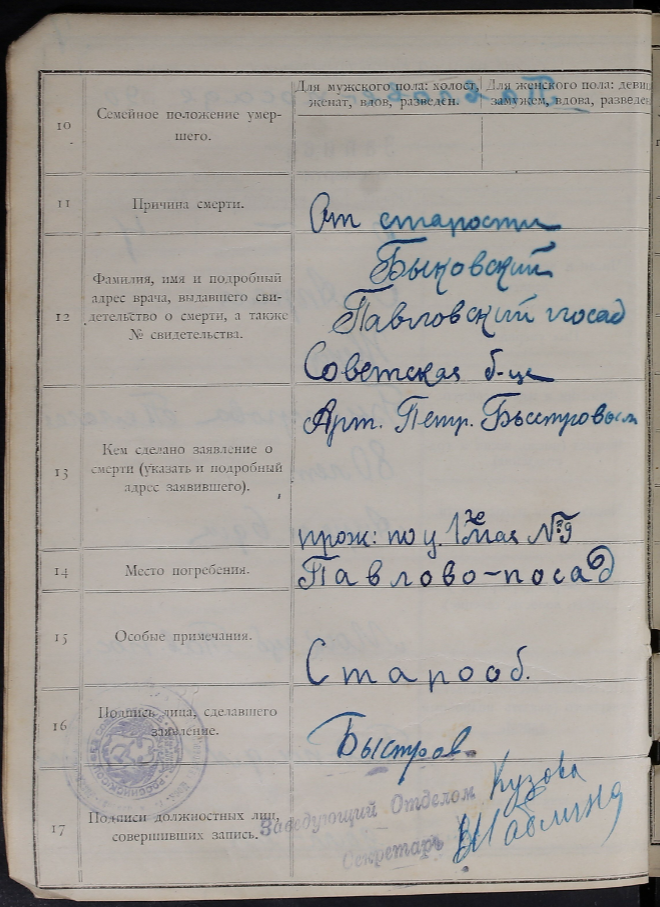 10
Семейное положение умер-
шего.
Для мужского пола: холост,
женат, вдов, разведен.
Для женского пола: девиц
замужем, вдова, разведен
11
Причина смерти.
От старости
12
Фамилия, имя и подробный
адрес врача, выдавшего сви-
детельство о смерти, а также
№ свидетельства.
Быковский
Павловский посад
Советская б-ца
13
Кем сделано заявление о
смерти (указать и подробный
адрес заявившего).
Арт. Петр. Быстровым
прож: по у. 1го Мая № 9
14
Место погребения.
Павлово-посад
15
Особые примечания.
Старооб.
16
Подпись лица, сделавшего
заявление.
Быстров
17
Подписи должностных лиц,
совершивших запись.
Заведующий Отделом
Секретарь